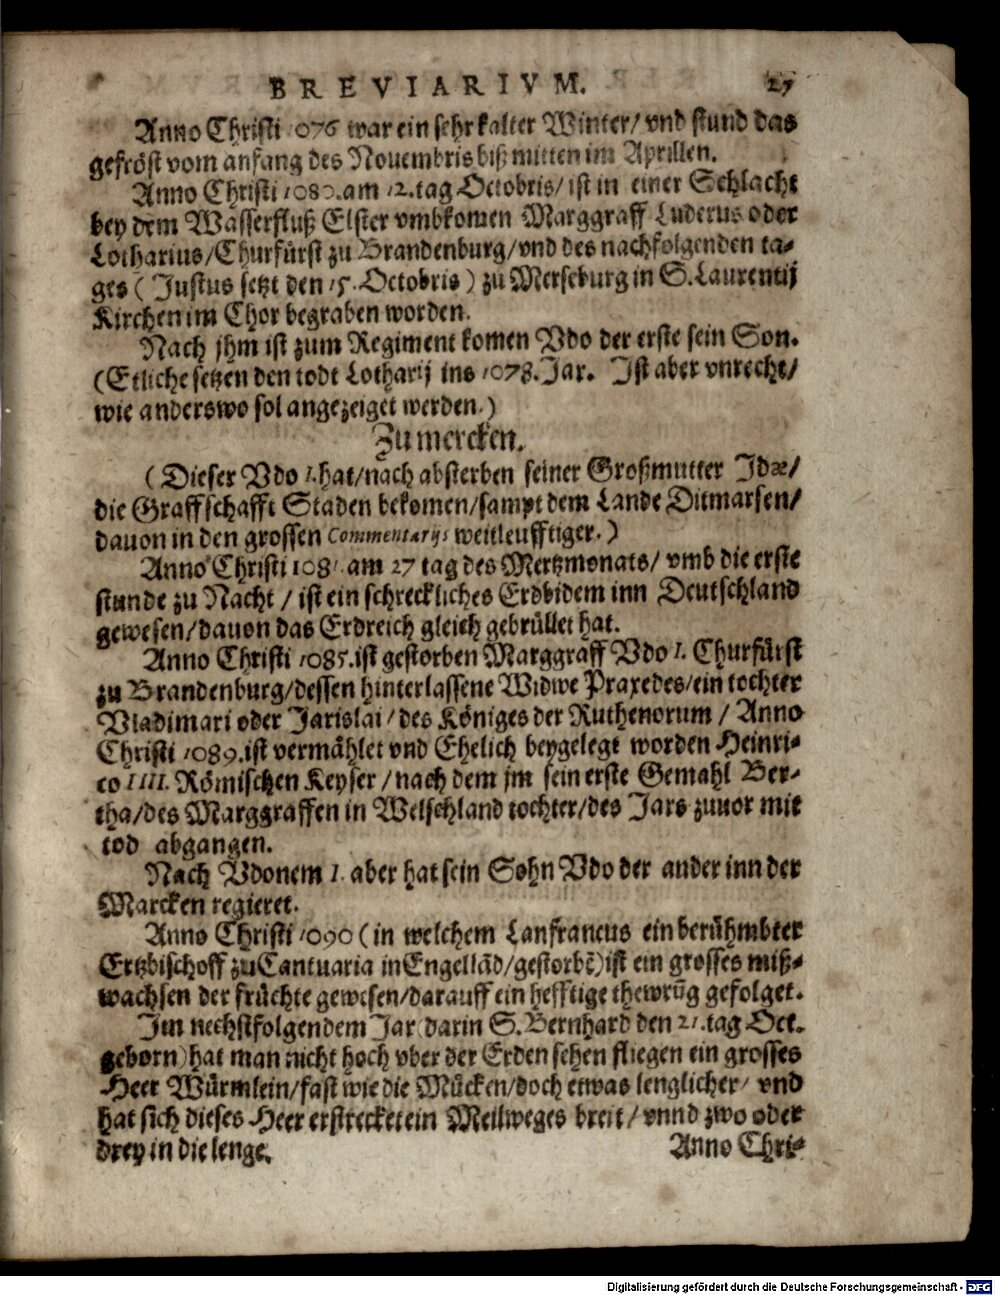 BREVIARIVM. 27
Anno Christi 1076 war ein sehr kalter Winter/ vnd stund das
gefröst vom anfang des Nouembris biß mitten im Aprillen.
Anno Christi 1080. am 12. tag Octobris/ ist in einer Schlacht
bey dem Wasserfluß Elster vmbkomen Marggraff Luderus oder
Lotharius/ Churfürst zu Brandenburg/ vnd des nachfolgenden ta-
ges ( Justus setzt den 15. Octobris ) zu Merseburg in S. Laurentij
Kirchen im Chor begraben worden.
Nach jhm ist zum Regiment komen Vdo der erste sein Son.
(Etliche setzen den todt Lotharij ins 1078. Jar. Ist aber vnrecht/
wie anderswo sol angezeiget werden.)
Zu mercken.
( Dieser Vdo I. hat/ nach absterben seiner Großmutter Idæ/
die Graffschafft Staden bekomen/ sampt dem Lande Ditmarsen/
dauon in den grossen Commentarijs weitleufftiger.)
Anno Christi 1081. am 27 tag des Mertzmonats/ vmb die erste
stunde zu Nacht / ist ein schreckliches Erdbidem inn Deutschland
gewesen/ dauon das Erdreich gleich gebrüllet hat.
Anno Christi 1085. ist gestorben Marggraff Vdo I. Churfürst
zu Brandenburg/ dessen hinterlassene Widwe Praxedes/ ein tochter
Vladimari oder Jarislai / des Königes der Ruthenorum / Anno
Christi 1089. ist vermählet vnd Ehelich beygelegt worden Heinri-
co IIII. Römischen Keyser / nach dem jm sein erste Gemahl Ber-
tha/ des Marggraffen in Welschland tochter/ des Jars zuuor mit
tod abgangen.
Nach Vdonem I. aber hat sein Sohn Vdo der ander inn der
Marcken regieret.
Anno Christi 1090 ( in welchem Lanfrancus ein berühmbter
Ertzbischoff zu Cantuaria in Engellãd/ gestorbẽ) ist ein grosses miß-
wachsen der früchte gewesen/ darauff ein hefftige thewrũg gefolget.
Im nechstfolgendem Jar (darin S. Bernhard den 21. tag Oct.
geborn) hat man nicht hoch vber der Erden sehen fliegen ein grosses
Heer Würmlein/ fast wie die Mücken/ doch etwas lenglicher/ vnd
hat sich dieses Heer erstrecket ein Meilweges breit / vnnd zwo oder
drey in die lenge.
Anno Chri-
Digitalisierung gefördert durch die Deutsche Forschungsgemeinschaft - DFG